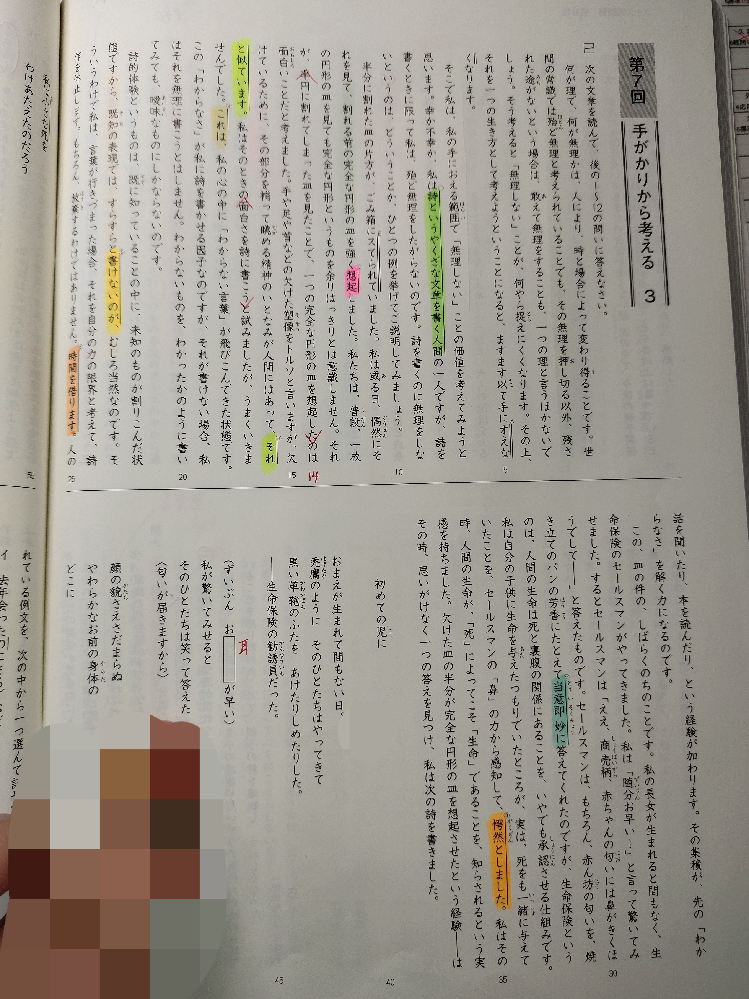 第7回 手がかりから考える 3
次の文章を読んで、後の1~12の問いに答えなさい。
何が理で、何が無理かは、人により、時と場合によって変わり得ることです。世
間の常識では殆ど無理と考えられていることでも、その無理を押し切る以外、残さ
れた途がないという場合は、敢えて無理をすることも、一つの理と言うほかないで
しょう。そう考えると「無理しない」ことが、何やら捉えにくくなります。その上、
それを一つの生き方として考えようということになると、ますます以て手に負えな
くなります。
そこで私は、私の手におえる範囲で「無理しない」ことの価値を考えてみようと
思います。幸か不幸か、私は詩というやくざな文章を書く人間の一人ですが、詩を
書くときに限って私は、殆ど無理をしたがらないのです。詩を書くのに無理をしな
いというのは、どういうことか、ひとつの例を挙げてご説明してみましょう。
半分に割れた皿の片方が、ごみ箱にスてられていました。私は或る日、偶然にそ
れを見て、割れる前の完全な円形の皿を強く想起しました。私たちは、普段、一枚
の円形の皿を見ても完全な円形というものを余りはっきりとは意識しません。それ
が、半円に割れてしまった皿を見たことで、一つの完全な円形の皿を想起したのは
面白いことだと考えました。手や足や首などの欠けた塑像をトルソと言いますが、欠
けているために、その部分を補って眺める精神のいとなみが人間にはあって、それ
と似ています。私はそのときの面白さを詩に書こうと試みましたが、うまくいきま
せんでした。これは、私の心の中に「わからない言葉」が飛びこんできた状態です。
この「わからなさ」が私に詩を書かせる因子なのですが、それが書けない場合、私
はそれを無理に書こうとはしません。わからないものを、わかったかのように書い
てみても、曖昧なものにしかならないのです。
詩的体験というものは、既に知っていることの中に、未知のものが割りこんだ状
態ですから、既知の表現では、すらすらと書けないのが、むしろ当然なのです。そ
ういうわけで私は、言葉が行きづまった場合、それを自分の力の限界と考えて、詩
作を中止します。もちろん、放棄するわけではありません。時間を借ります。人の
5
10
15
14
20
25
話を聞いたり、本を読んだり、という経験が加わります。その累積が、先の「わか
らなさ」を解く力になるのです。
この、皿の件の、しばらくのちのことです。私の長女が生まれると間もなく、生
命保険のセールスマンがやってきました。私は「随分お早い…」と言って驚いてみ
せました。するとセールスマンは「ええ、商売柄、赤ちゃんの匂いには鼻がきくほ
うでして――」と答えたものです。セールスマンは、もちろん、赤ん坊の匂いを、焼
き立てのパンの芳香にたとえて当意即妙に答えてくれたのですが、生命保険という
のは、人間の生命は死と裏腹の関係にあることを、いやでも承認させる仕組みです。
私は自分の子供に生命を与えたつもりでいたところが、実は、死をも一緒に与えて
いたことを、セールスマンの「鼻」の力から感知して、愕然としました。私はその
時、人間の生命が、「死」によってこそ「生命」であることを、知らされるという実
感を持ちました。欠けた皿の半分が完全な円形の皿を想起させたという経験――は
その時、思いがけなく一つの答えを見つけ、私は次の詩を書きました。
初めての児に
おまえが生まれて間もない日。
禿鷹のように そのひとたちはやってきて
黒い革鞄のふたを あけたりしめたりした。
――生命保険の勧誘員だった。
(ずいぶん お 耳 が早い)
私が驚いてみせると
そのひとたちは笑って答えた
〈匂いが届きますから〉
顔の貌さえさだまらぬ
やわらかなお前の身体の
どこに
30
35
40
45
れている例文を、次の中から一つ選んで